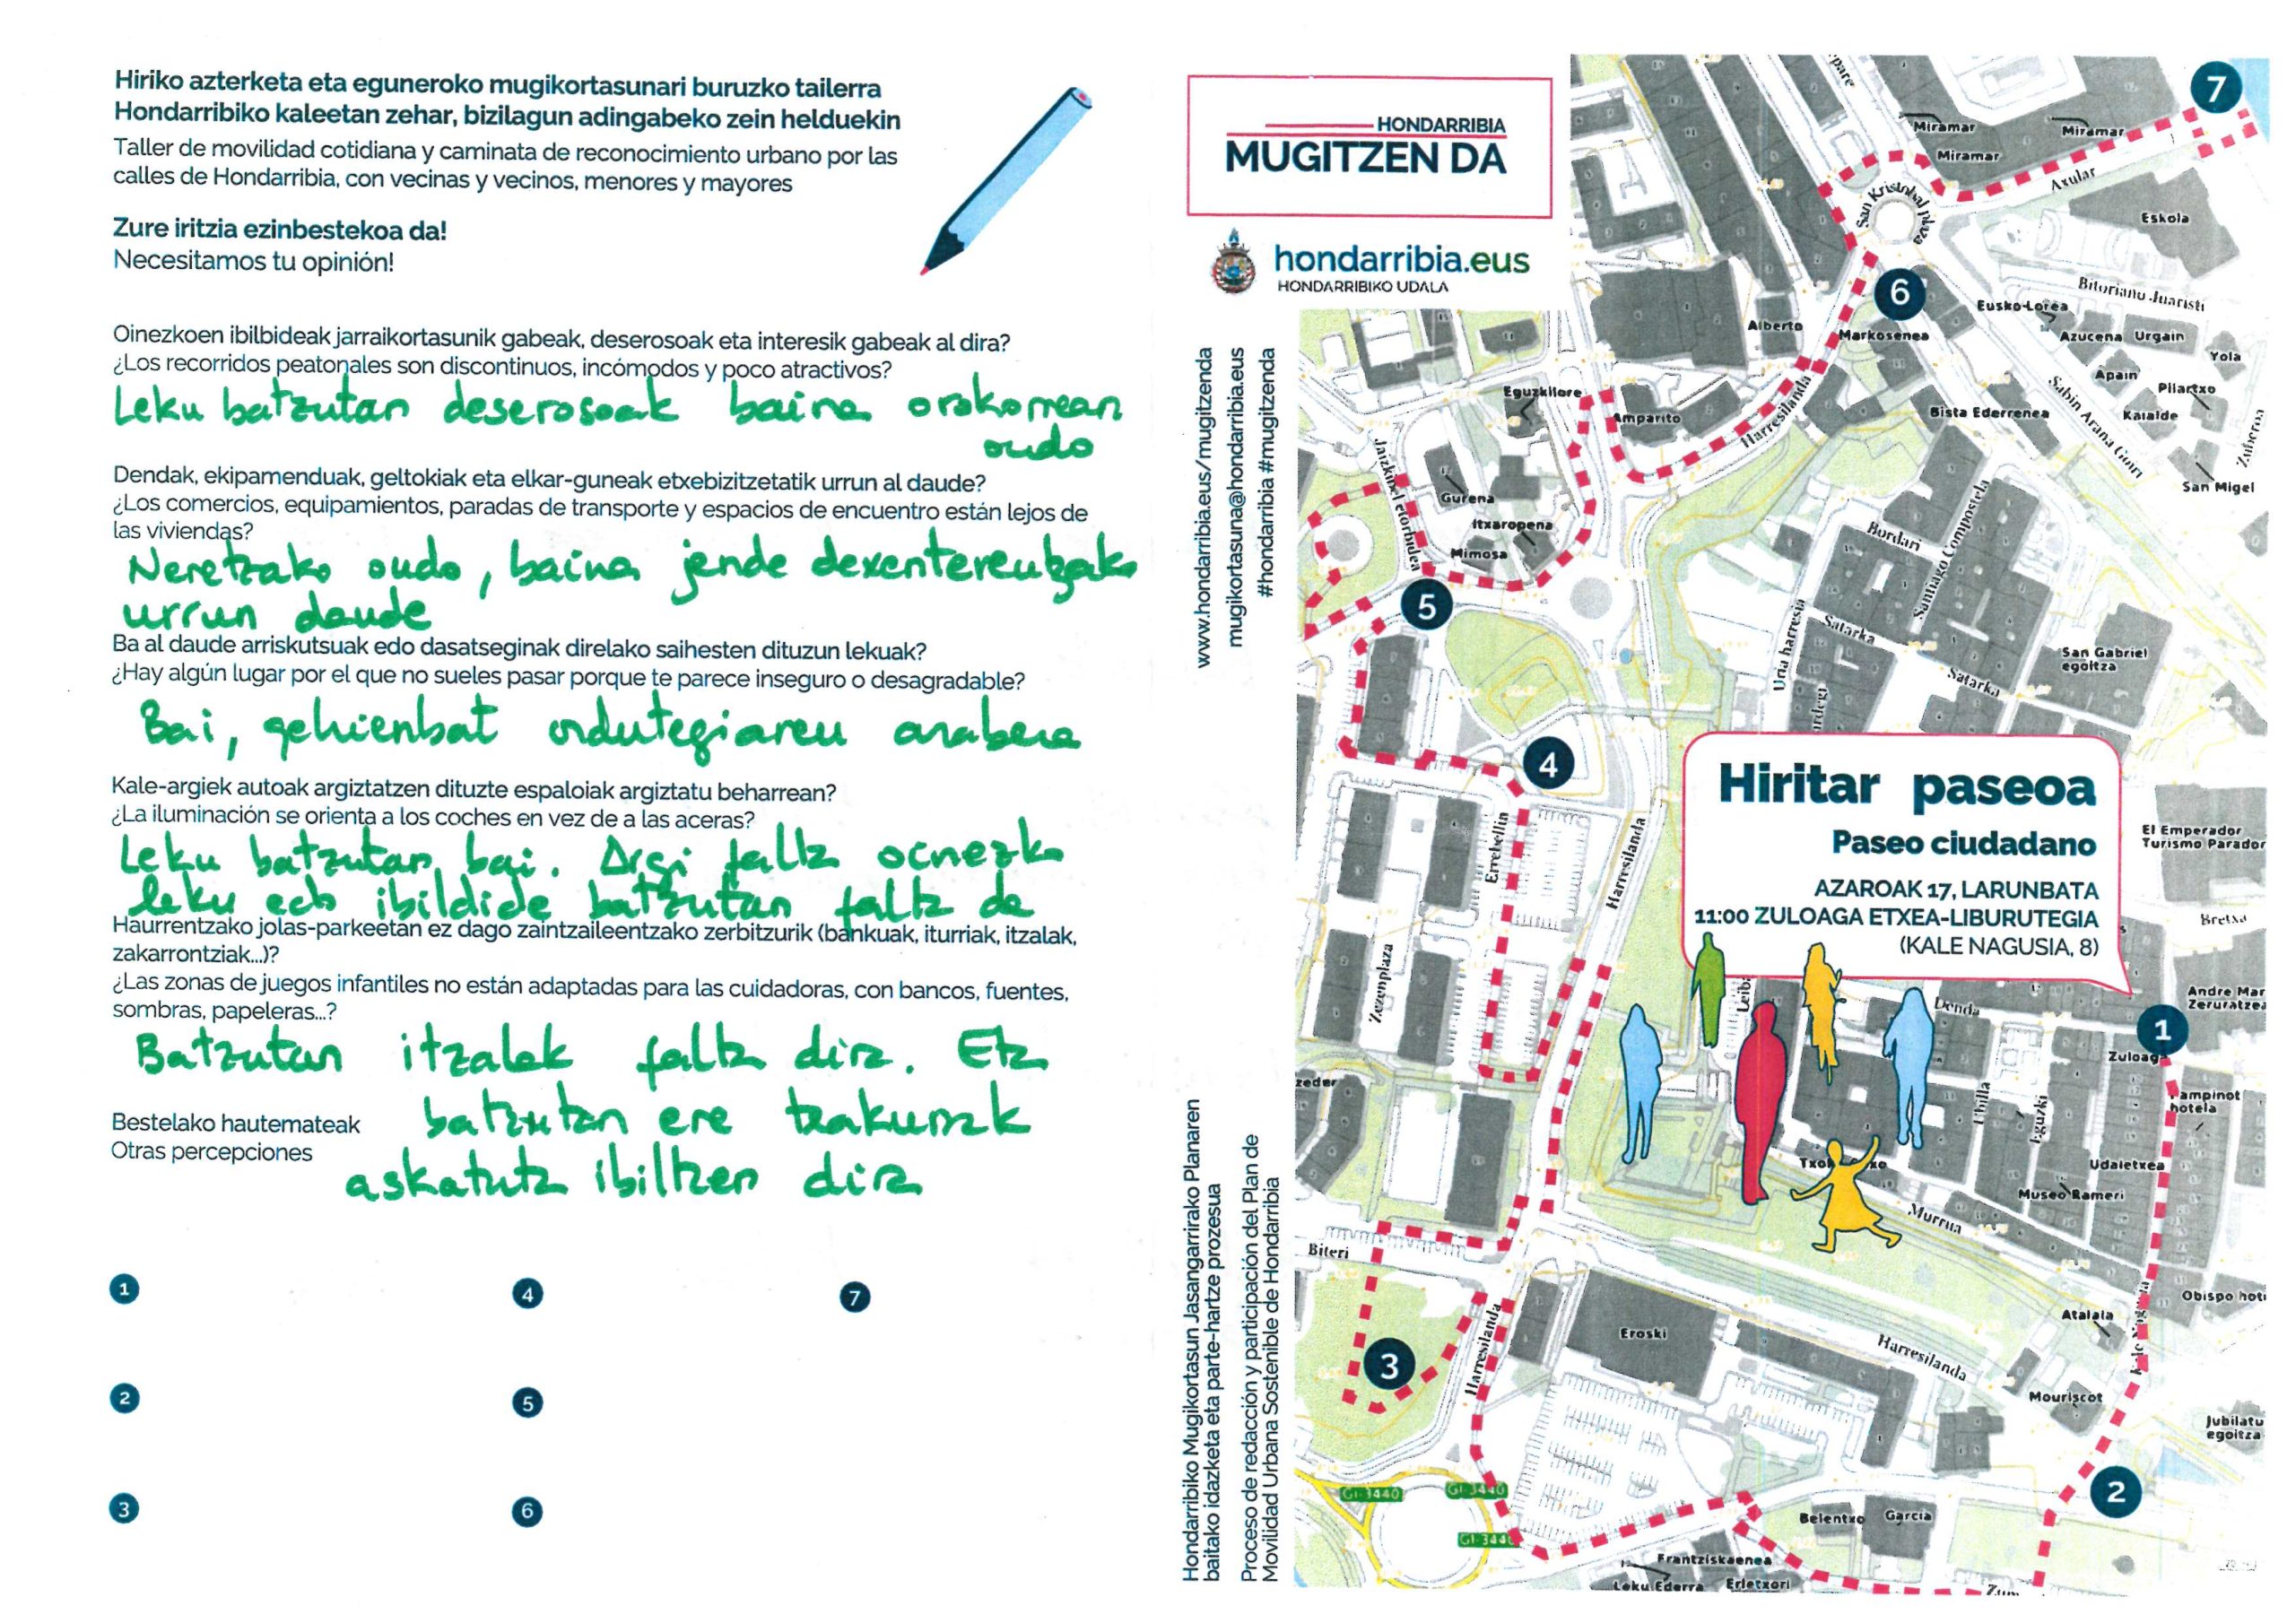 Hiriko azterketa eta eguneroko mugikortasunari buruzko tailerra
Hondarribiko kaleetan zehar, bizilagun adingabeko zein helduekin
Taller de movilidad cotidiana y caminata de reconocimiento urbano por las
calles de Hondarribia, con vecinas y vecinos, menores y mayores
Zure iritzia ezinbestekoa da!
Necesitamos tu opinión!
Oinezkoen ibilbideak jarraikortasunik gabeak, deserosoak eta interesik gabeak al dira?
¿Los recorridos peatonales son discontinuos, incómodos y poco atractivos?
Leku batzutan deserosoak baina orokorrean
ondo
Dendak, ekipamenduak, geltokiak eta elkar-guneak etxebizitzetatik urrun al daude?
¿Los comercios, equipamientos, paradas de transporte y espacios de encuentro están lejos de
las viviendas?
Neretzako ondo, baina jende dexenterentzako
urrun daude
Ba al daude arriskutsuak edo dasatseginak direlako saihesten dituzun lekuak?
¿Hay algún lugar por el que no sueles pasar porque te parece inseguro o desagradable?
Bai, gehienbat ordutegiaren arabera
Kale-argiek autoak argiztatzen dituzte espaloiak argiztatu beharrean?
¿La iluminación se orienta a los coches en vez de a las aceras?
Leku batzutan bai. Argi falta oinezko
leku edo ibildide batzutan falta da
Haurrentzako jolas-parkeetan ez dago zaintzaileentzako zerbitzurik (bankuak, iturriak, itzalak,
zakarrontziak...)?
¿Las zonas de juegos infantiles no están adaptadas para las cuidadoras, con bancos, fuentes,
sombras, papeleras...?
Batzutan itzalak falta dira. Eta
batzutan ere txakurrak
askatuta ibiltzen dira
Bestelako hautemateak
Otras percepciones
1
4
7
2
5
3
6
HONDARRIBIA
MUGITZEN DA
hondarribia.eus
HONDARRIBIKO UDALA
www.hondarribia.eus/mugitzenda
mugikortasuna@hondarribia.eus
#hondarribia #mugitzenda
Hondarribiko Mugikortasun Jasangarrirako Planaren
baitako idazketa eta parte-hartze prozesua
Proceso de redacción y participación del Plan de
Movilidad Urbana Sostenible de Hondarribia
7
Miramar
Miramar
Miramar
Axular
San Kristobal plaza
Eskola
6
Bitorianu Juaristi
Eusko-Lorea
Alberto
Markosenea
Azucena
Urgain
Yola
Apain
Pilartxo
Eguzkilore
Amparito
Harresilanda
Bista Ederrenea
Kaialde
Sabin Arana Goiri
Zuberoa
Jaizkibel etorbidea
Gurena
San Migel
Itxaropena
Mimosa
Bordari
Santiago Compostela
5
Uria harresia
Satarka
San Gabriel
egoitza
Satarka
4
Hiritar paseoa
Paseo ciudadano
AZAROAK 17, LARUNBATA
11:00 ZULOAGA ETXEA-LIBURUTEGIA
(KALE NAGUSIA, 8)
Errebellin
Harresilanda
El Emperador
Turismo Parador
Zezenplaza
Denda
1
Zuloaga
Ubilla
Eguzki
Udaletxea
Museo Rameri
Murrua
Biteri
Obispo
Atalaia
Eroski
Harresilanda
Harresilanda
3
Mouriscot
Jubilatu
egoitza
GI-3440
GI-3440
GI-3440
2
Belentxo
Garcia
Frantziskaenea
Leku Ederra
Erletxori